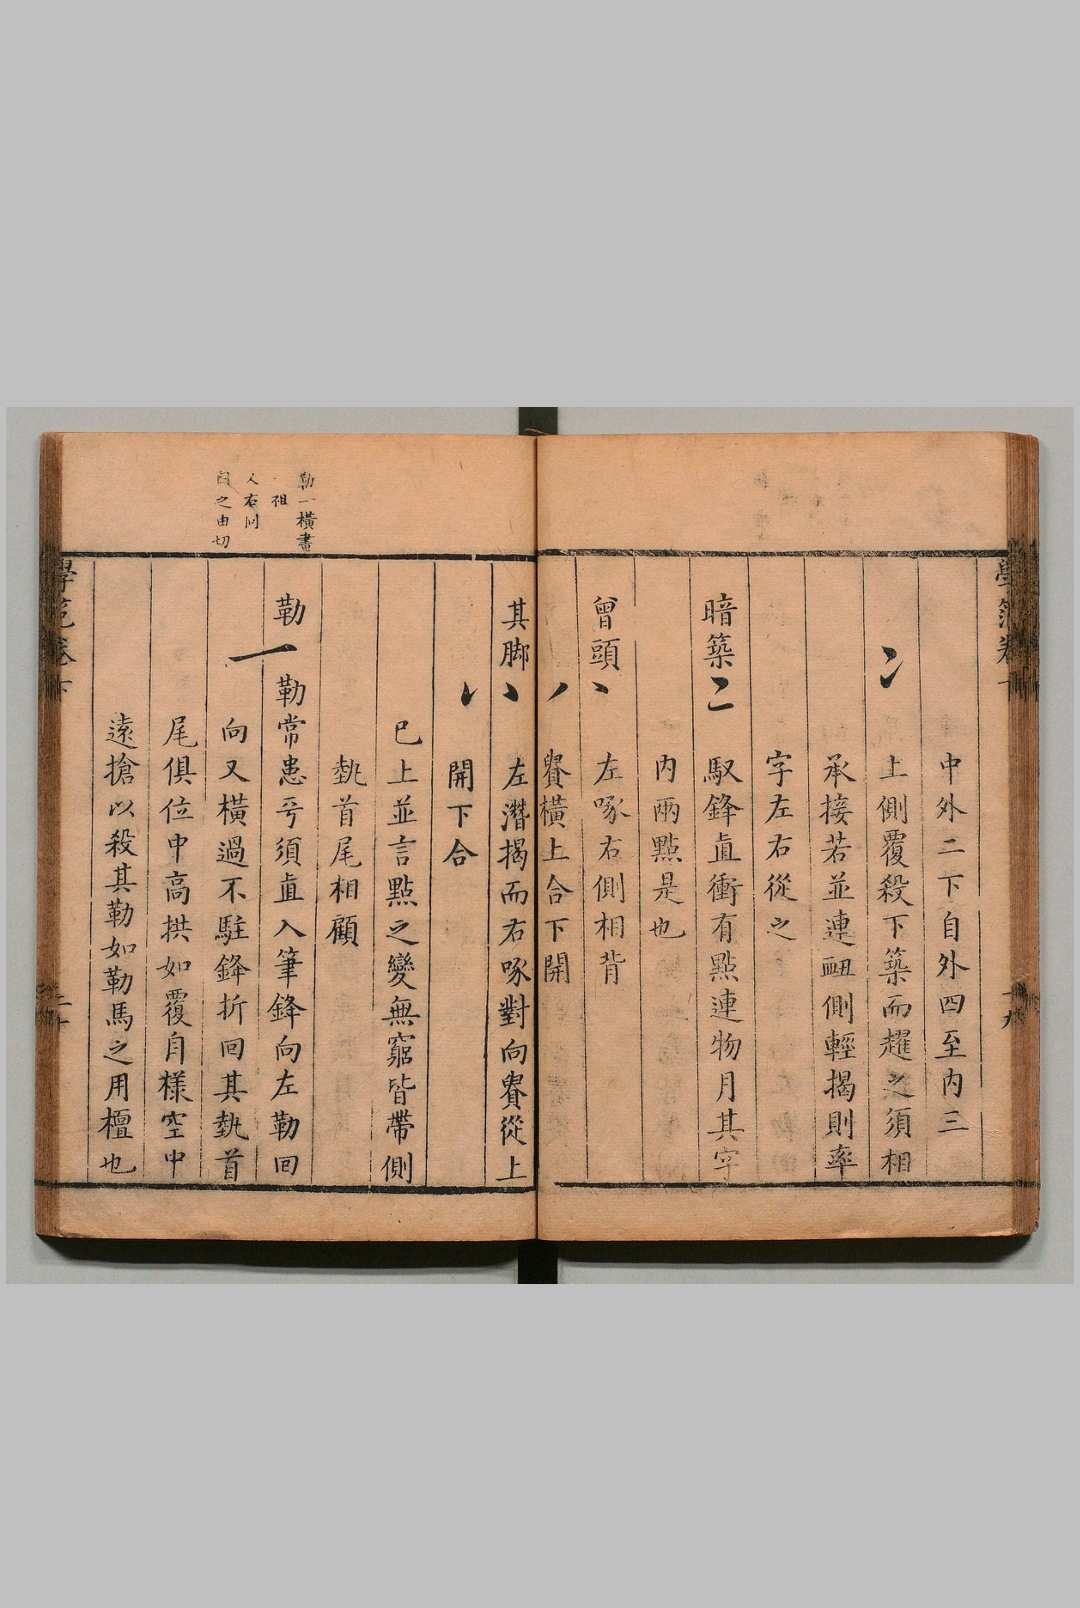 學範卷下
十九
中外二下自外四至内三
上側覆殺下築而趯之須相
承接若並連衄側輕揭則率
字左右從之
暗築 馭鋒直衝有點連物月其字
内兩點是也
曾頭 左啄右側相背
賫橫上合下開
其脚 左潛揭而右啄對向賫從上
開下合
已上並言點之變無窮皆帶側
埶首尾相顧
勒 勒常患平須直入筆鋒向左勒回
向又橫過不駐鋒折回其埶首
尾俱位中高拱如覆自様空中
遠搶以殺其勒如勒馬之用檀也
學範卷下
二十
勒一橫畫
祖
人右
之由切